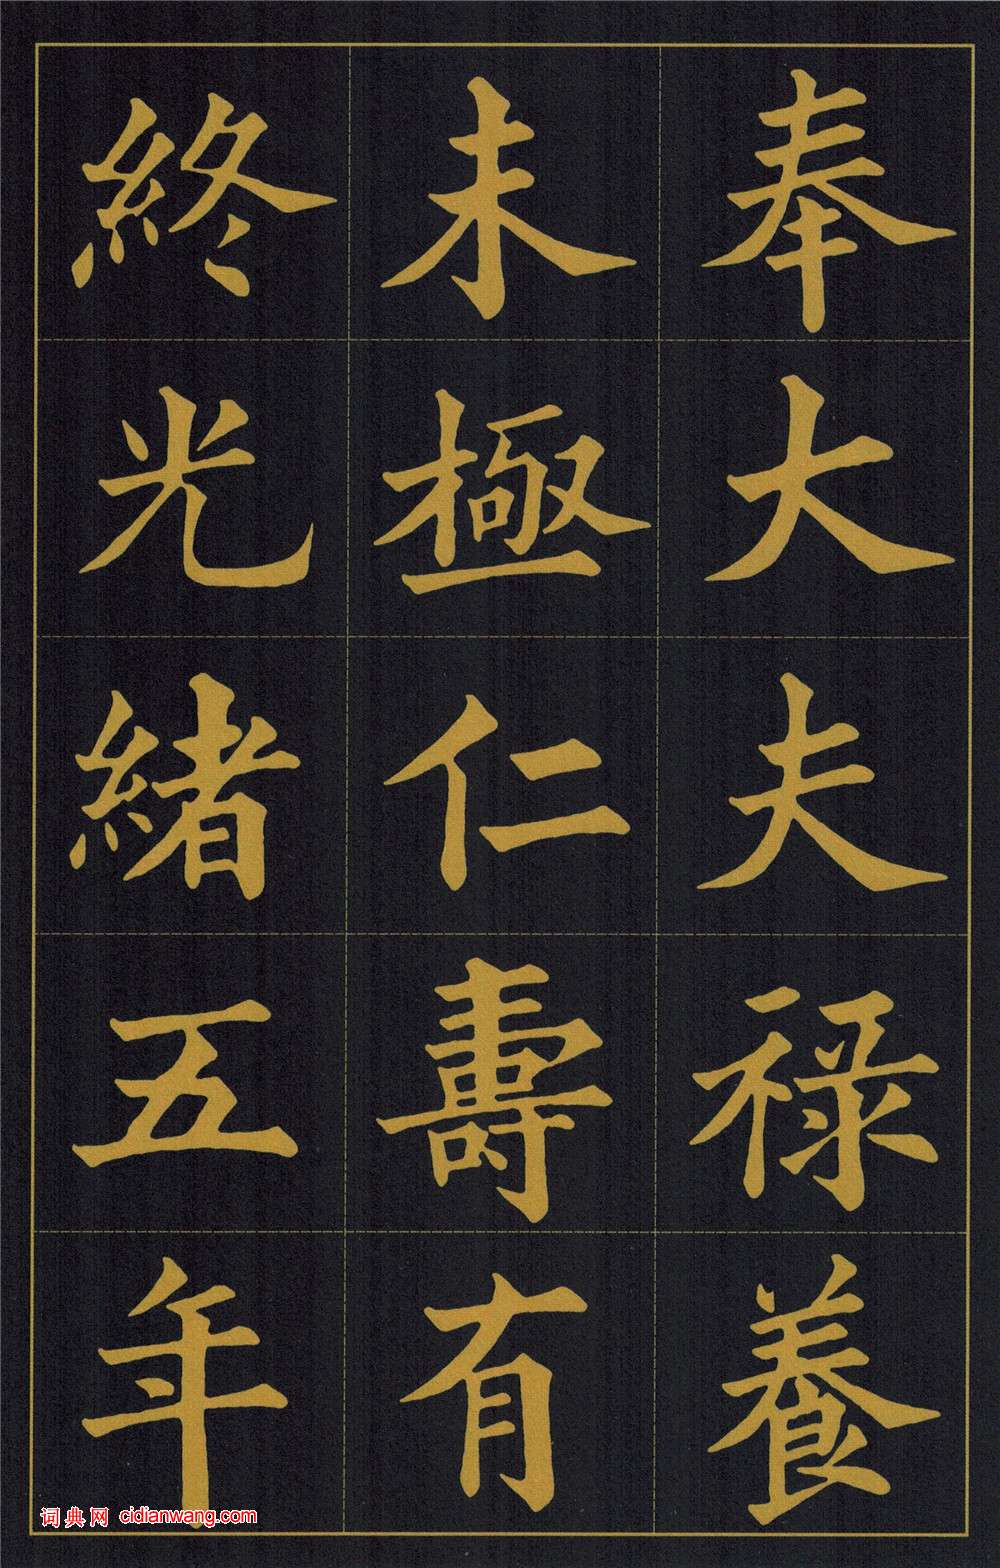 奉大夫禄養
未極仁壽有
終光緒五年
词典网 cidianwang.com